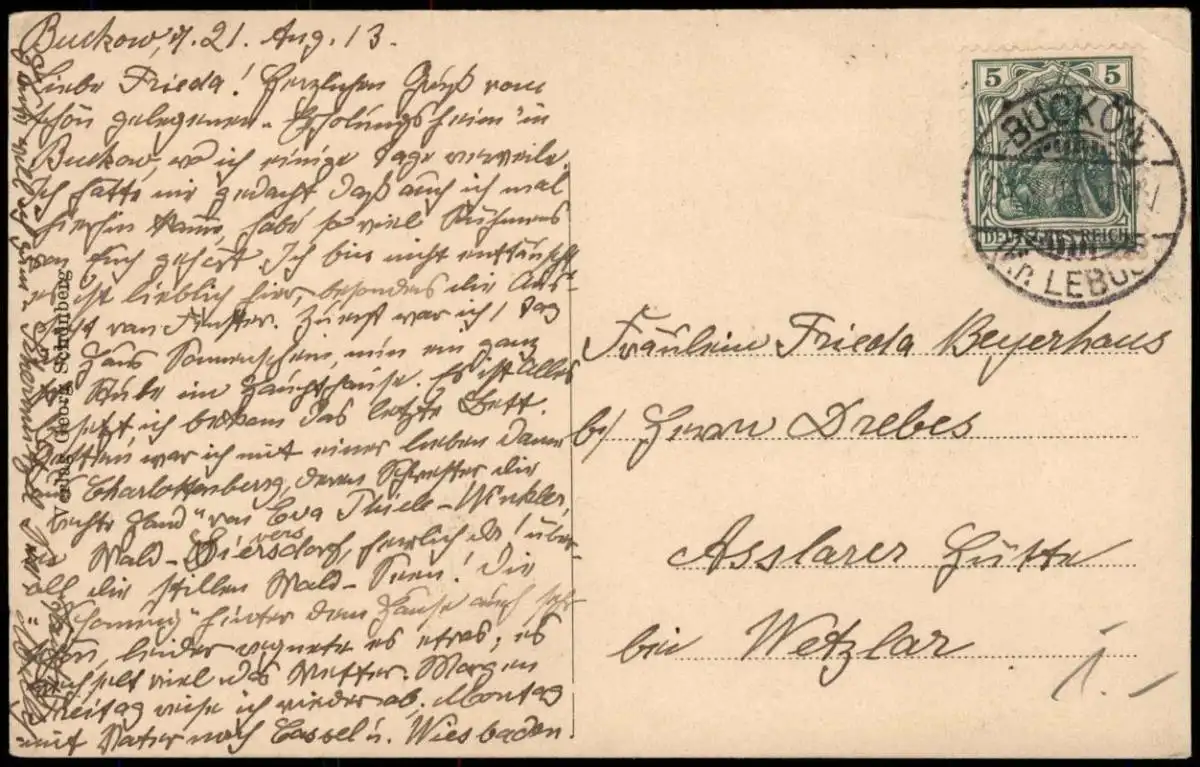 Buckow, d. 21. Aug. 13.
Liebe Frieda! Herzlichen Gruß vom
schön gelegenen "Erholungsheim" in
Buckow, wo ich einige Tage verweile.
Ich hatte nie gedacht daß auch ich mal
hierhin käme, habe so viel Rühmens
von Euch gehört. Ich bin nicht enttäuscht
es ist lieblich hier, besonders die Aus-
sicht vom Fenster. Zuerst war ich 1 Tag
Haus Sonnenschein, nun ein ganz
Stube im Haupthause. Es ist Alles
besetzt ich bekam das letzte Bett.
war ich mit einer lieben Dame
aus Charlottenberg, deren Schwester die
"rechte Hand" von Eva Thiele-Winkler,
in Wald-Sieversdorf, herrlich da! über-
all die stillen Wald-Seen! Die
hinter dem Hause auch sehr
schön, leider regnete es etwas; es
wechselt viel das Wetter. Morgen
Freitag reise ich wieder ab. Montag
mit Vater nach Cassel u. Wiesbaden.
Verlag Georg Schönberg
5 5
DEUTSCHES REICH
BUCKOW
LEBUS
Fräulein Frieda Beyerhaus
b/ Herrn Drebes
Asslarer Hütte
bei Wetzlar
1.-